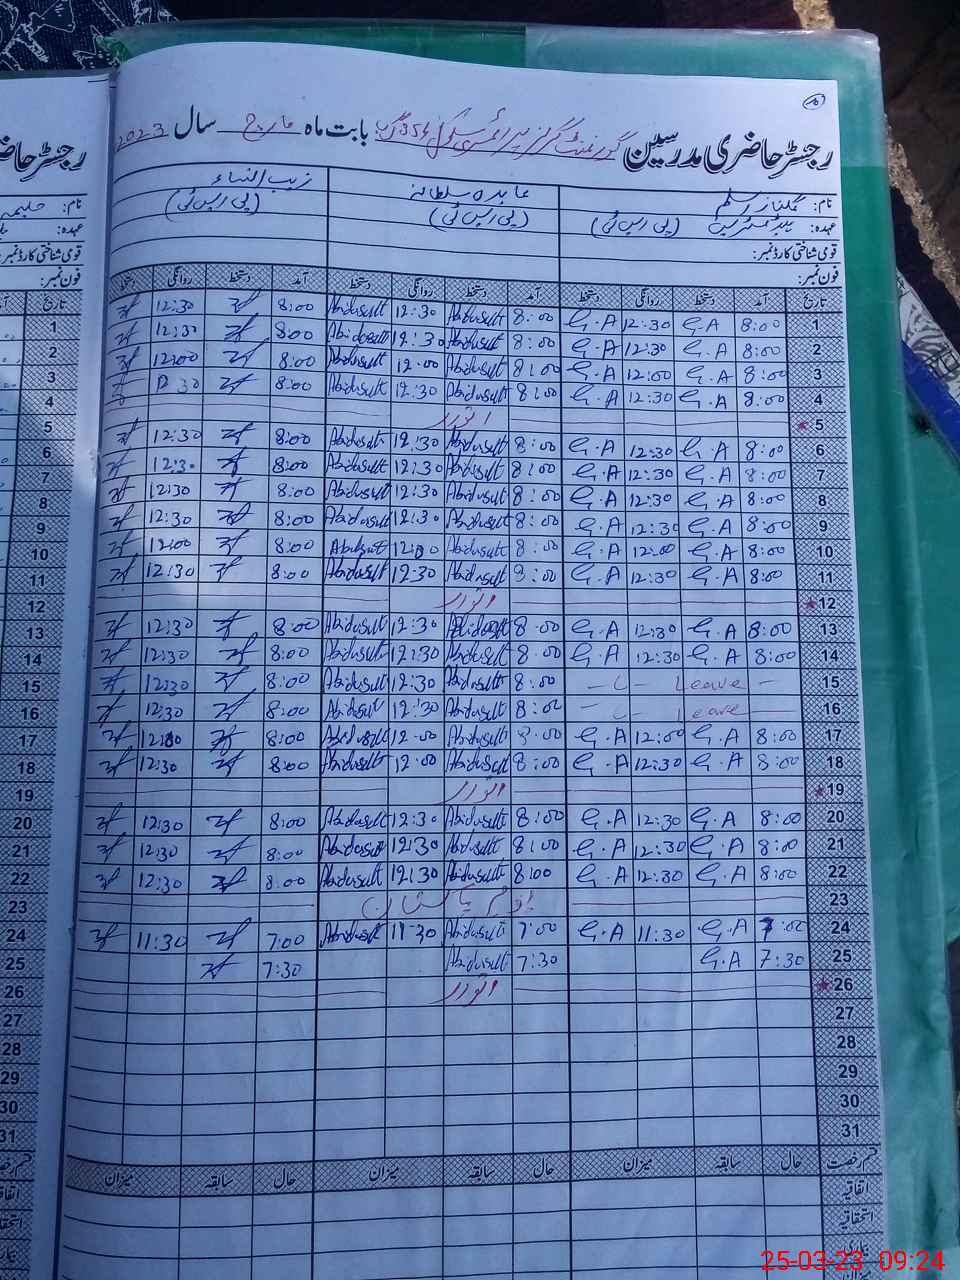 رجسٹر حاضری مدرسین گورنمنٹ گرلز پرائمری سکول 356 گ ب بابت ماہ مارچ سال 2023
نام: گلناز اسلم عابدہ سلطانہ زیب النساء
عہدہ: ہیڈ مسٹریس (پی ایس ٹی) (پی ایس ٹی) (پی ایس ٹی)
قومی شناختی کارڈ نمبر:
فون نمبر:
تاریخ آمد دستخط روانگی دستخط آمد دستخط روانگی دستخط آمد دستخط روانگی دستخط
1 8:00 G.A 12:30 G.A 8:00 Abidasult 12:30 Abidasult 8:00 12:30
2 8:00 G.A 12:30 G.A 8:00 Abidasult 12:30 Abidasult 8:00 12:30
3 8:00 G.A 12:00 G.A 8:00 Abidasult 12:00 Abidasult 8:00 12:00
4 8:00 G.A 12:30 G.A 8:00 Abidasult 12:30 Abidasult 8:00 12:30
5 اتوار
6 8:00 G.A 12:30 G.A 8:00 Abidasult 12:30 Abidasult 8:00 12:30
7 8:00 G.A 12:30 G.A 8:00 Abidasult 12:30 Abidasult 8:00 12:30
8 8:00 G.A 12:30 G.A 8:00 Abidasult 12:30 Abidasult 8:00 12:30
9 8:00 G.A 12:30 G.A 8:00 Abidasult 12:30 Abidasult 8:00 12:30
10 8:00 G.A 12:00 G.A 8:00 Abidasult 12:00 Abidasult 8:00 12:00
11 8:00 G.A 12:30 G.A 8:00 Abidasult 12:30 Abidasult 8:00 12:30
12 اتوار
13 8:00 G.A 12:30 G.A 8:00 Abidasult 12:30 Abidasult 8:00 12:30
14 8:00 G.A 12:30 G.A 8:00 Abidasult 12:30 Abidasult 8:00 12:30
15 - Leave - L - 8:00 Abidasult 12:30 Abidasult 8:00 12:30
16 - Leave - L - 8:00 Abidasult 12:30 Abidasult 8:00 12:30
17 8:00 G.A 12:00 G.A 8:00 Abidasult 12:00 Abidasult 8:00 12:00
18 8:00 G.A 12:30 G.A 8:00 Abidasult 12:00 Abidasult 8:00 12:30
19 اتوار
20 8:00 G.A 12:30 G.A 8:00 Abidasult 12:30 Abidasult 8:00 12:30
21 8:00 G.A 12:30 G.A 8:00 Abidasult 12:30 Abidasult 8:00 12:30
22 8:00 G.A 12:30 G.A 8:00 Abidasult 12:30 Abidasult 8:00 12:30
23 یوم پاکستان
24 7:00 G.A 11:30 G.A 7:00 Abidasult 11:30 Abidasult 7:00 11:30
25 7:30 G.A 7:30 Abidasult 7:30
26 اتوار
27
28
29
30
31
قسم رخصت حال سابقہ میزان حال سابقہ میزان حال سابقہ میزان
اتفاقیہ
استحقاقیہ
بیماری
25-03-23 09:24